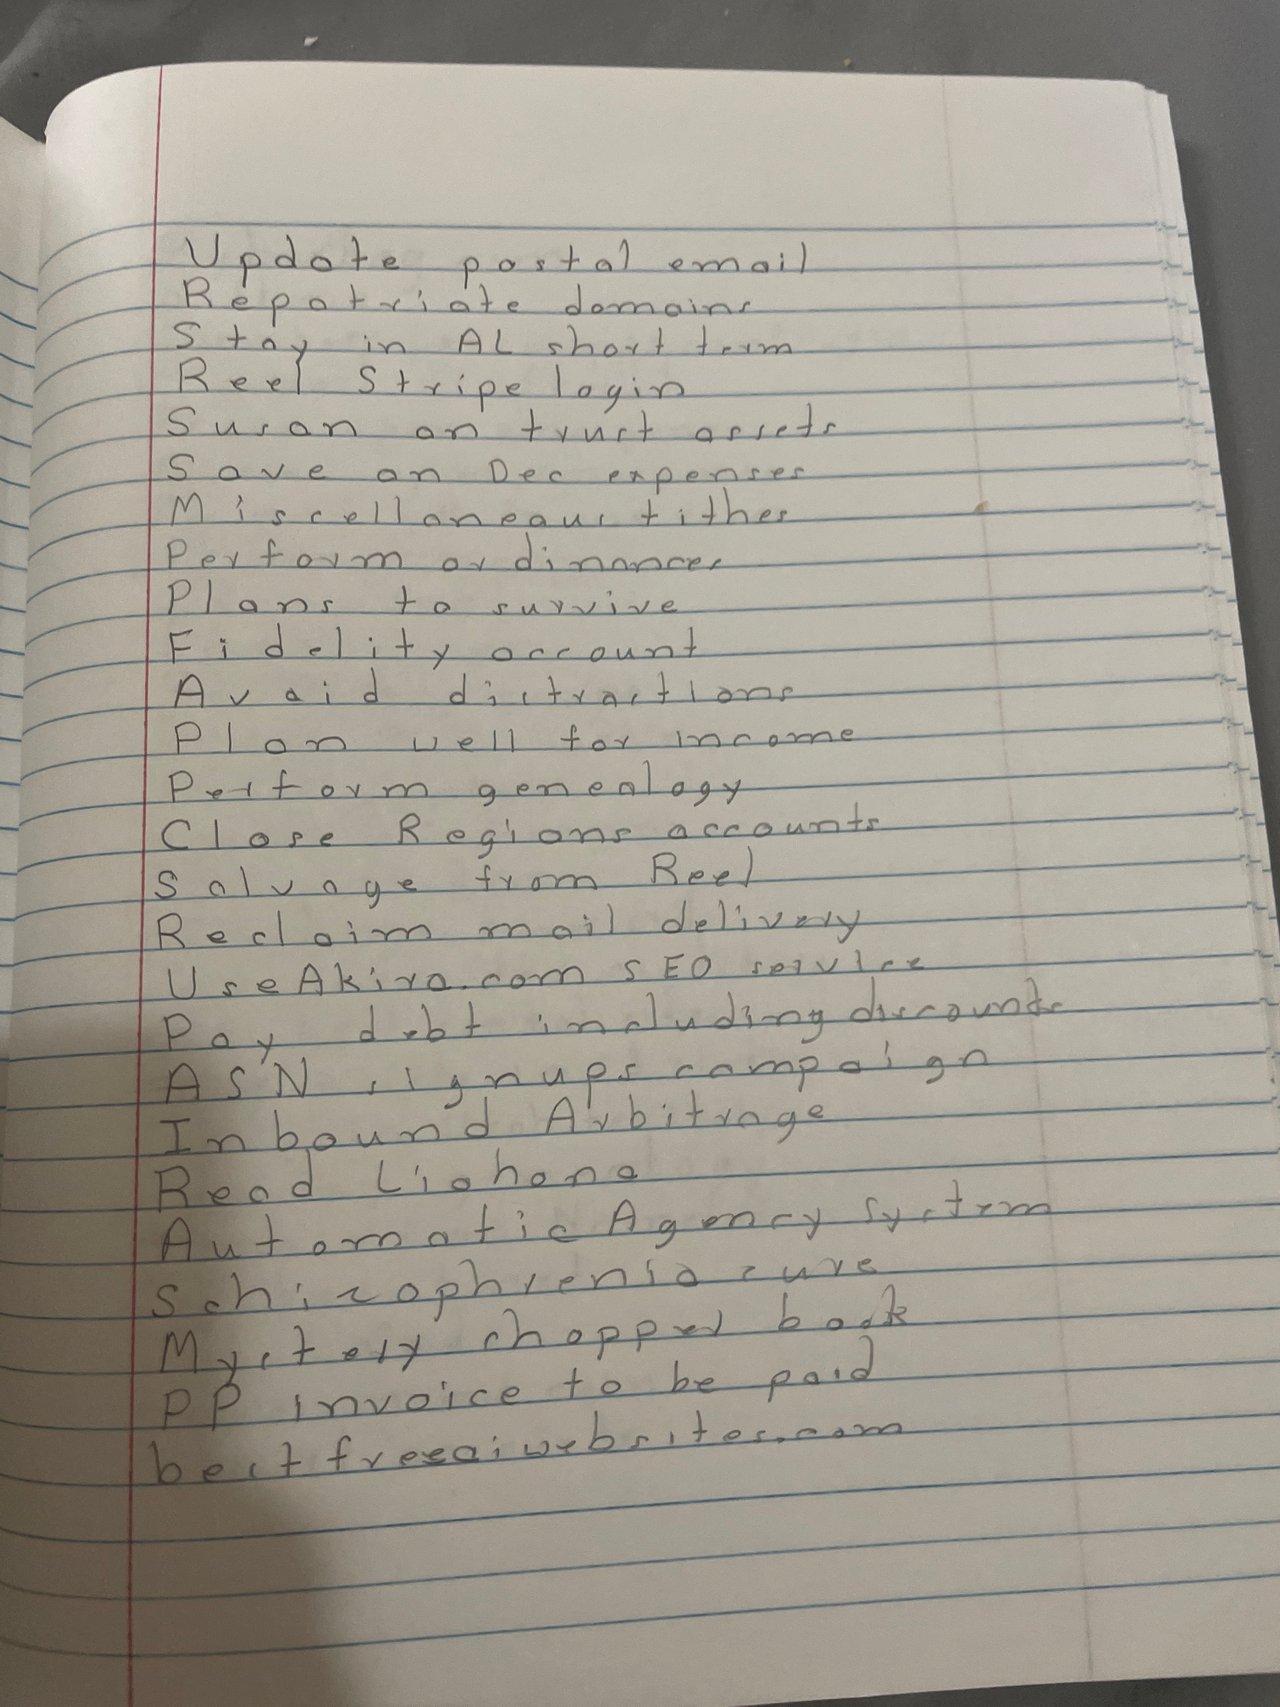 Update postal email
Repatriate domains
Stay in AL short term
Reel Stripe login
Susan on trust assets
Save on Dec expenses
Miscellaneous tithes
Perform ordinances
Plans to survive
Fidelity account
Avoid distractions
Plan well for income
Perform genealogy
Close Regions accounts
Salvage from Reel
Reclaim mail delivery
UseAkira.com SEO service
Pay debt including discounts
ASN signups campaign
Inbound Arbitrage
Read Liahona
Automatic Agency System
Schizophrenia cure
Mystery chopped book
PP invoice to be paid
bestfreeaiwebsites.com